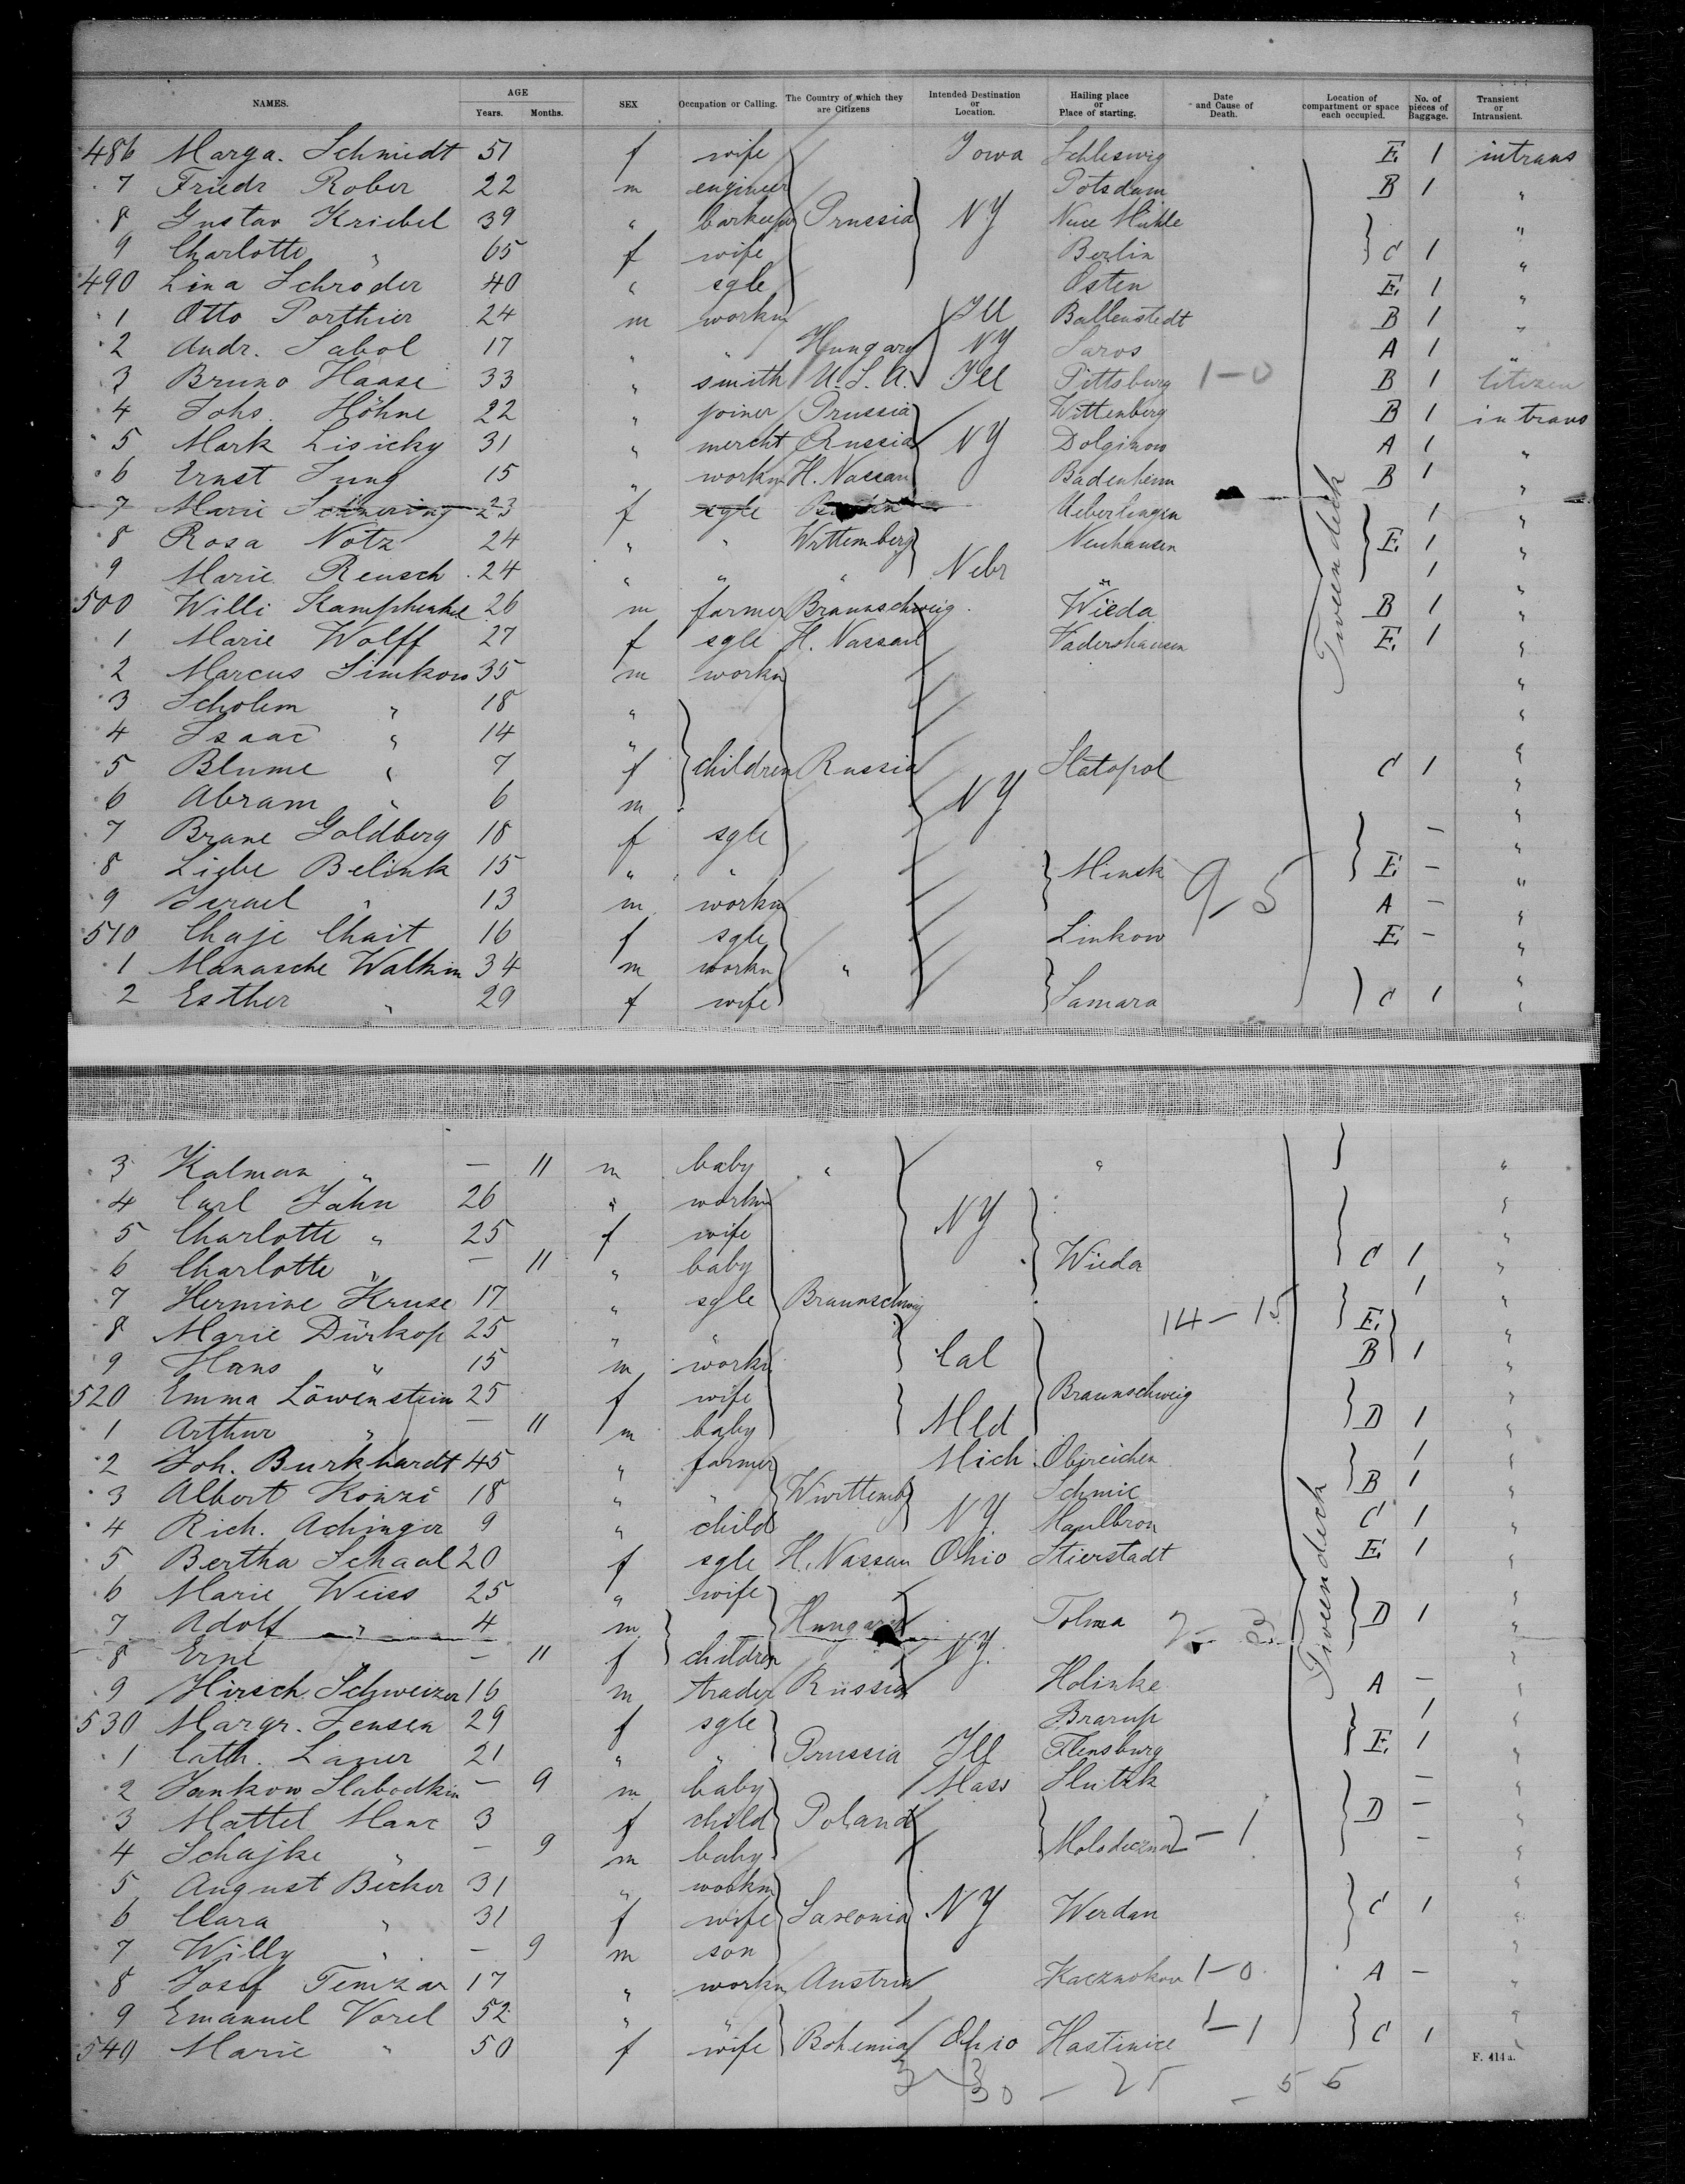 NAMES. AGE Years. Months. SEX Occupation or Calling. The Country of which they are Citizens Intended Destination or Location. Hailing place or Place of starting. Date and Cause of Death. Location of compartment or space each occupied. No. of pieces of Baggage. Transient or Intransient.
486 Marga. Schmidt 51 f wife Iowa Schleswig E. 1 intrans
7 Friedr Rober 22 m engineer Potsdam B 1 "
8 Gustav Kriebel 39 " barkeeper Prussia NY Neue Mühle "
9 Charlotte " 65 f wife Berlin C 1 "
490 Lina Schroder 40 " sgle Osten E. 1 "
1 Otto Porthier 24 m workm Ill Ballenstedt B 1 "
2 Andr. Sabol 17 " " Hungary NY Saros A 1 "
3 Bruno Haase 33 " smith U.S.A. Ill Pittsburg 1-0 B 1 Citizen
4 Johs. Höhne 22 " joiner Prussia Wittenberg B 1 intrans
5 Mark Lisicky 31 " mercht Russia NY Dolginow A 1 "
6 Ernst Jung 15 " workm H. Nassau Badenheim B 1 "
7 Marie 23 f sgle Ueberlingen 1 "
8 Rosa Notz 24 " " Wrttemberg Neuhausen E. 1 "
9 Marie Reusch 24 " " " Nebr " 1 "
500 Willi 26 m farmer Braunschweig Wieda B 1 "
1 Marie Wolff 27 f sgle H. Nassau Vadershausen E. 1 "
2 Marcus Simkow 35 m workm "
3 Scholem " 18 " "
4 Isaac " 14 " "
5 Blume " 7 f children Russia Slatopol C 1 "
6 Abram " 6 m NY "
7 Brane Goldberg 18 f sgle - "
8 Liebe Belink 15 " " Minsk 9-5 E. - "
9 Israel " 13 m workm A - "
510 Chaje Chait 16 f sgle Linkow E. - "
1 Manasche Walkin 34 m workm " "
2 Esther " 29 f wife Samara C 1 "
Tweendeck
3 Kalman " - 11 m baby " " "
4 Carl Jahn 26 " workm "
5 Charlotte " 25 f wife NY "
6 Charlotte " - 11 " baby Wieda C 1 "
7 Hermine Kruse 17 " sgle Braunschweig 1 "
8 Marie Dürkop 25 " " 14-15 E. "
9 Hans " 15 m workm Cal B 1 "
520 Emma Löwenstein 25 f wife Braunschweig "
1 Arthur " - 11 m baby Mld D 1 "
2 Joh. Burkhardt 45 " farmer Mich Obereichen 1 "
3 Albert 18 " " Württemb Schmie B 1 "
4 Rich. Achinger 9 " child NY. Maulbron C 1 "
5 Bertha Schaal 20 f sgle H. Nassau Ohio Stierstadt E. 1 "
6 Marie Weiss 25 " wife "
7 Adolf " 4 m Hungary Tolma D 1 "
8 Erne " - 11 f children NY. "
9 Hirsch Schweizer 16 m trader Russia Holinke A - "
530 Margr. Jensen 29 f sgle Brarup 1 "
1 Cath. Lauer 21 " " Prussia Ill Flensburg E. 1 "
2 Jankow Slabodkin - 9 m baby Mass Slutzk - "
3 Mattel Manc 3 f child Poland D - "
4 Schajke " - 9 m baby 2-1 - "
5 August Becker 31 " workm "
6 Clara " 31 f wife Saxonia NY Werdau C 1 "
7 Willy " - 9 m son "
8 Josef Temzar 17 " workm Austria 1-0 A - "
9 Emanuel Vorel 52 " " 1-1 "
540 Marie " 50 f wife Bohemia Ohio Hastinice C 1 "
Tweendeck
30 - 25 - 56
F. 414a.